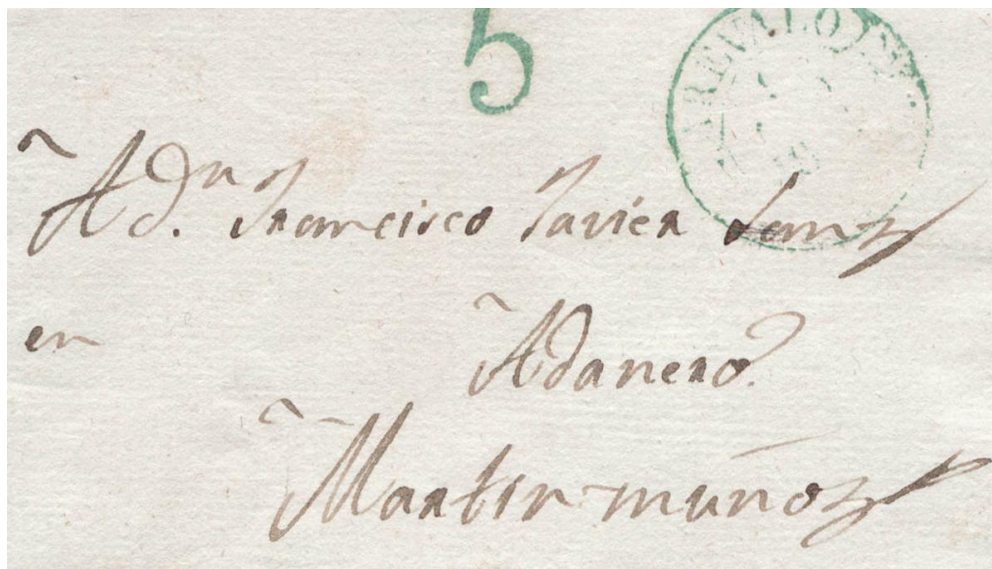 5
AREVALO
A Dn. Francisco Javier Sanz
en Adanero
Martin muñoz